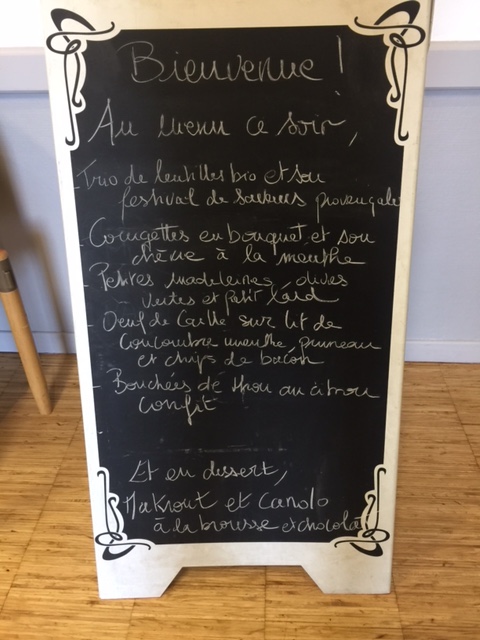 Bienvenue !
Au menu ce soir,
- Trio de lentilles bio et son
festival de saveurs provençales
- Courgettes en bouquet et son
chèvre à la menthe
- Petites madeleines, olives
vertes et petit lard
- Oeuf de Caille sur lit de
concombre menthe, pruneau
et chips de bacon
- Bouchées de thon au citron
confit
Et en dessert,
Makrout et Canolo
à la brousse et chocolat